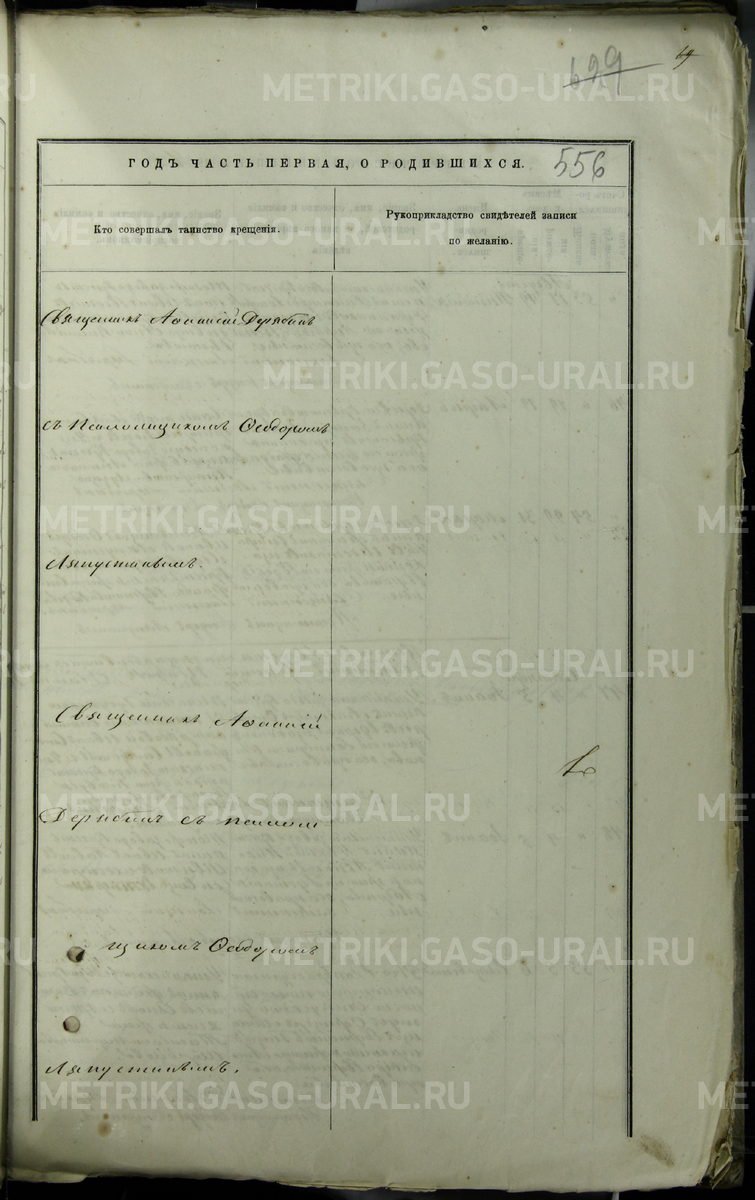 69
629
ГОДЪ ЧАСТЬ ПЕРВАЯ, О РОДИВШИХСЯ.
556
Кто совершалъ таинство крещенія.
Рукоприкладство свидѣтелей записи
по желанію.
Священникъ Аѳанасій Дерябинъ
съ Псаломщикомъ Ѳеодоромъ
Ляпустинымъ.
Священникъ Аѳанасій
Дерябинъ съ псалом
щикомъ Ѳеодоромъ
Ляпустинымъ.
METRIKI.GASO-URAL.RU